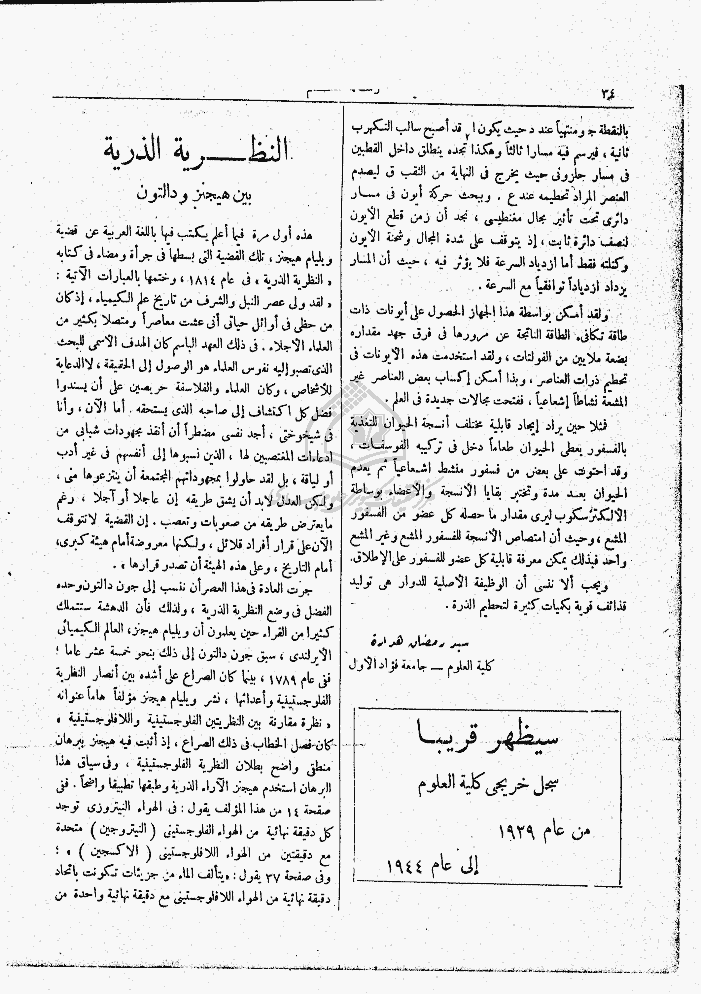 ٣٤
بالنقطة ج ومنتهياً عند د حيث يكون ا, قد أصبح سالب التكهرب
ثانية ، فيرسم فيه مساراً ثالثاً وهكذا تجده ينطلق داخل القطبين
فى مسار حلزونى حيث يخرج فى النهاية من الثقب ق ليصدم
العنصر المراد تحطيمه عند ع . وببحث حركة أيون فى مسار
دائرى تحت تأثير مجال مغنطيسى ، نجد أن زمن قطع الأيون
لنصف دائرة ثابت ، إذ يتوقف على شدة المجال وشحنة الأيون
وكتلته فقط أما ازدياد السرعة فلا يؤثر فيه ، حيث أن المسار
يزداد ازدياداً توافقياً مع السرعة .
ولقد أمكن بواسطة هذا الجهاز الحصول على أيونات ذات
طاقة تكافىء الطاقة الناتجة عن مرورها فى فرق جهد مقداره
بضعة ملايين من الفولتات ، ولقد استخدمت هذه الأيونات فى
تحطيم ذرات العناصر ، وبذا أمكن إكساب بعض العناصر غير
المشعة نشاطاً إشعاعياً ، ففتحت مجالات جديدة فى العلم .
فمثلا حين يراد إيجاد قابلية مختلف أنسجة الحيوان للتغذية
بالفسفور يعطى الحيوان طعاماً دخل فى تركيبه الفوسفات ،
وقد احتوت على بعض من فسفور منشط اشعاعياً ثم يعدم
الحيوان بعد مدة وتختبر بقايا الأنسجة والأعضاء بوساطة
الالكترسكوب ليرى مقدار ما حصله كل عضو من الفسفور
المشع ، وحيث أن امتصاص الأنسجة للفسفور المشع وغير المشع
واحد فبذلك يمكن معرفة قابلية كل عضو للفسفور على الإطلاق.
ويجب ألا ننسى أن الوظيفة الأصلية للدوار هى توليد
قذائف قوية بكميات كثيرة لتحطيم الذرة .
سيد رمضان هدارة
كلية العلوم — جامعة فؤاد الأول
سيظهر قريبا
سجل خريجى كلية العلوم
من عام ١٩٢٩
إلى عام ١٩٤٤
النظرية الذرية
بين هيجنز ودالتون
هذه أول مرة فيما أعلم يكتب فيها باللغة العربية عن قضية
ويليام هيجنز ، تلك القضية التى بسطها فى جرأة ومضاء فى كتابه
« النظرية الذرية » فى عام ١٨١٤ ، وختمها بالعبارات الآتية :
« لقد ولى عصر النبل والشرف من تاريخ علم الكيمياء ، إذ كان
من حظى فى أوائل حياتى أنى عشت معاصراً ومتصلا بكثير من
العلماء الأجلاء . فى ذلك العهد الباسم كان الهدف الأسمى للبحث
الذى تصبو إليه نفوس العلماء هو الوصول إلى الحقيقة ، لا الدعاية
للأشخاص ، وكان العلماء والفلاسفة حريصين على أن يسندوا
فضل كل اكتشاف إلى صاحبه الذى يستحقه . أما الآن ، وأنا
فى شيخوختى ، أجد نفسى مضطراً أن أنقذ مجهودات شبابى من
ادعاءات المغتصبين لها ، الذين نسبوها إلى أنفسهم فى غير أدب
أو لياقة ، بل لقد حاولوا بمجهوداتهم المجتمعة أن ينتزعوها منى ،
ولكن العدل لابد أن يشق طريقه إن عاجلا أو آجلا ، رغم
ما يعترض طريقه من صعوبات وتعصب . إن القضية لا تتوقف
الآن على قرار أفراد قلائل ، ولكنها معروضة أمام هيئة كبرى،
أمام التاريخ ، وعلى هذه الهيئة أن تصدر قرارها » .
جرت العادة فى هذا العصر أن ننسب إلى جون دالتون وحده
الفضل فى وضع النظرية الذرية ، ولذلك فأن الدهشة ستتملك
كثيرا من القراء حين يعلمون أن ويليام هيجنز، العالم الكيميائى
الأيرلندى ، سبق جون دالتون إلى ذلك بنحو خمسة عشر عاما ؛
ففى عام ١٧٨٩ ، بينما كان الصراع على أشده بين أنصار النظرية
الفلوجستينية وأعدائها ، نشر ويليام هيجنز مؤلفاً هاماً عنوانه
« نظرة مقارنة بين النظريتين الفلوجستينية واللافلوجستينية »
كان فصل الخطاب فى ذلك الصراع ، إذ أثبت فيه هيجنز ببرهان
منطقى واضح بطلان النظرية الفلوجستينية ، وفى سياق هذا
البرهان استخدم هيجنز الآراء الذرية وطبقها تطبيقا واضحاً . ففى
صفحة ١٤ من هذا المؤلف يقول : « فى الهواء النيتروزى توجد
كل دقيقة نهائية من الهواء الفلوجستينى ( النيتروجين ) متحدة
مع دقيقتين من الهواء اللافلوجستينى ( الاكسجين ) » ؛
وفى صفحة ٣٧ يقول : « يتألف الماء من جزيئات تكونت باتحاد
دقيقة نهائية من الهواء اللافلوجستينى مع دقيقة نهائية واحدة من